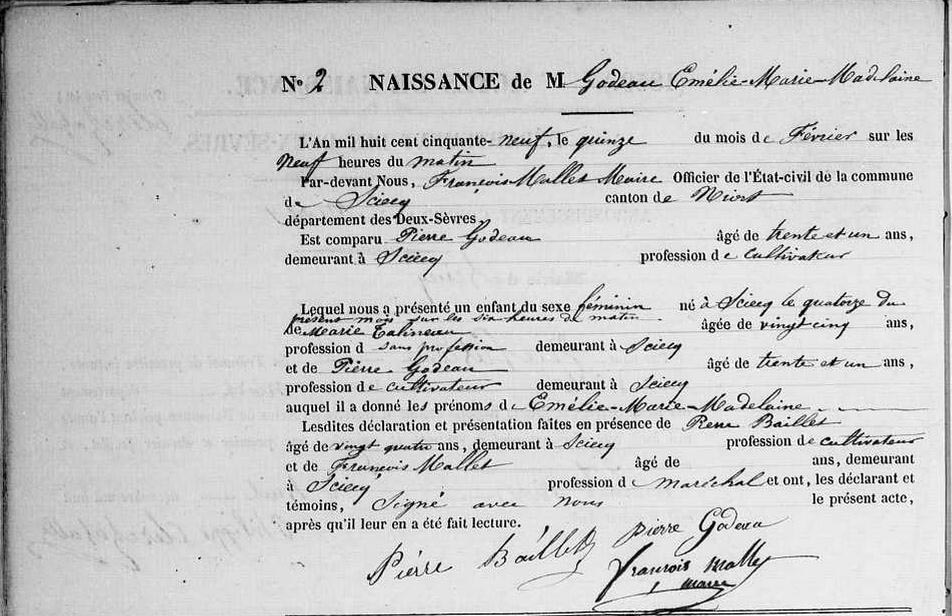 N° 2 NAISSANCE de M Godeau Emélie-Marie-Madelaine
L'An mil huit cent cinquante-neuf, le quinze du mois de Février sur les
Neuf heures du matin
Par-devant Nous, François Mallet Maire Officier de l'État-civil de la commune
de Sciecq canton de Niort
département des Deux-Sèvres
Est comparu Pierre Godeau âgé de trente et un ans,
demeurant à Sciecq profession de cultivateur
Lequel nous a présenté un enfant du sexe féminin né à Sciecq le quatorze du
présent mois sur les six heures de matin
de Marie Talineau âgée de vingt cinq ans,
profession d sans profession demeurant à Sciecq
et de Pierre Godeau âgé de trente et un ans,
profession de cultivateur demeurant à Sciecq
auquel il a donné les prénoms d Emélie-Marie-Madelaine
Lesdites déclaration et présentation faites en présence de Pierre Baillet
âgé de vingt quatre ans, demeurant à Sciecq profession de cultivateur
et de François Mallet âgé de ans, demeurant
à Sciecq profession de maréchal et ont, les déclarant et
témoins, Signé avec nous le présent acte,
après qu'il leur en a été fait lecture.
Pierre Baillet Pierre Godeau
françois Mallet
maire